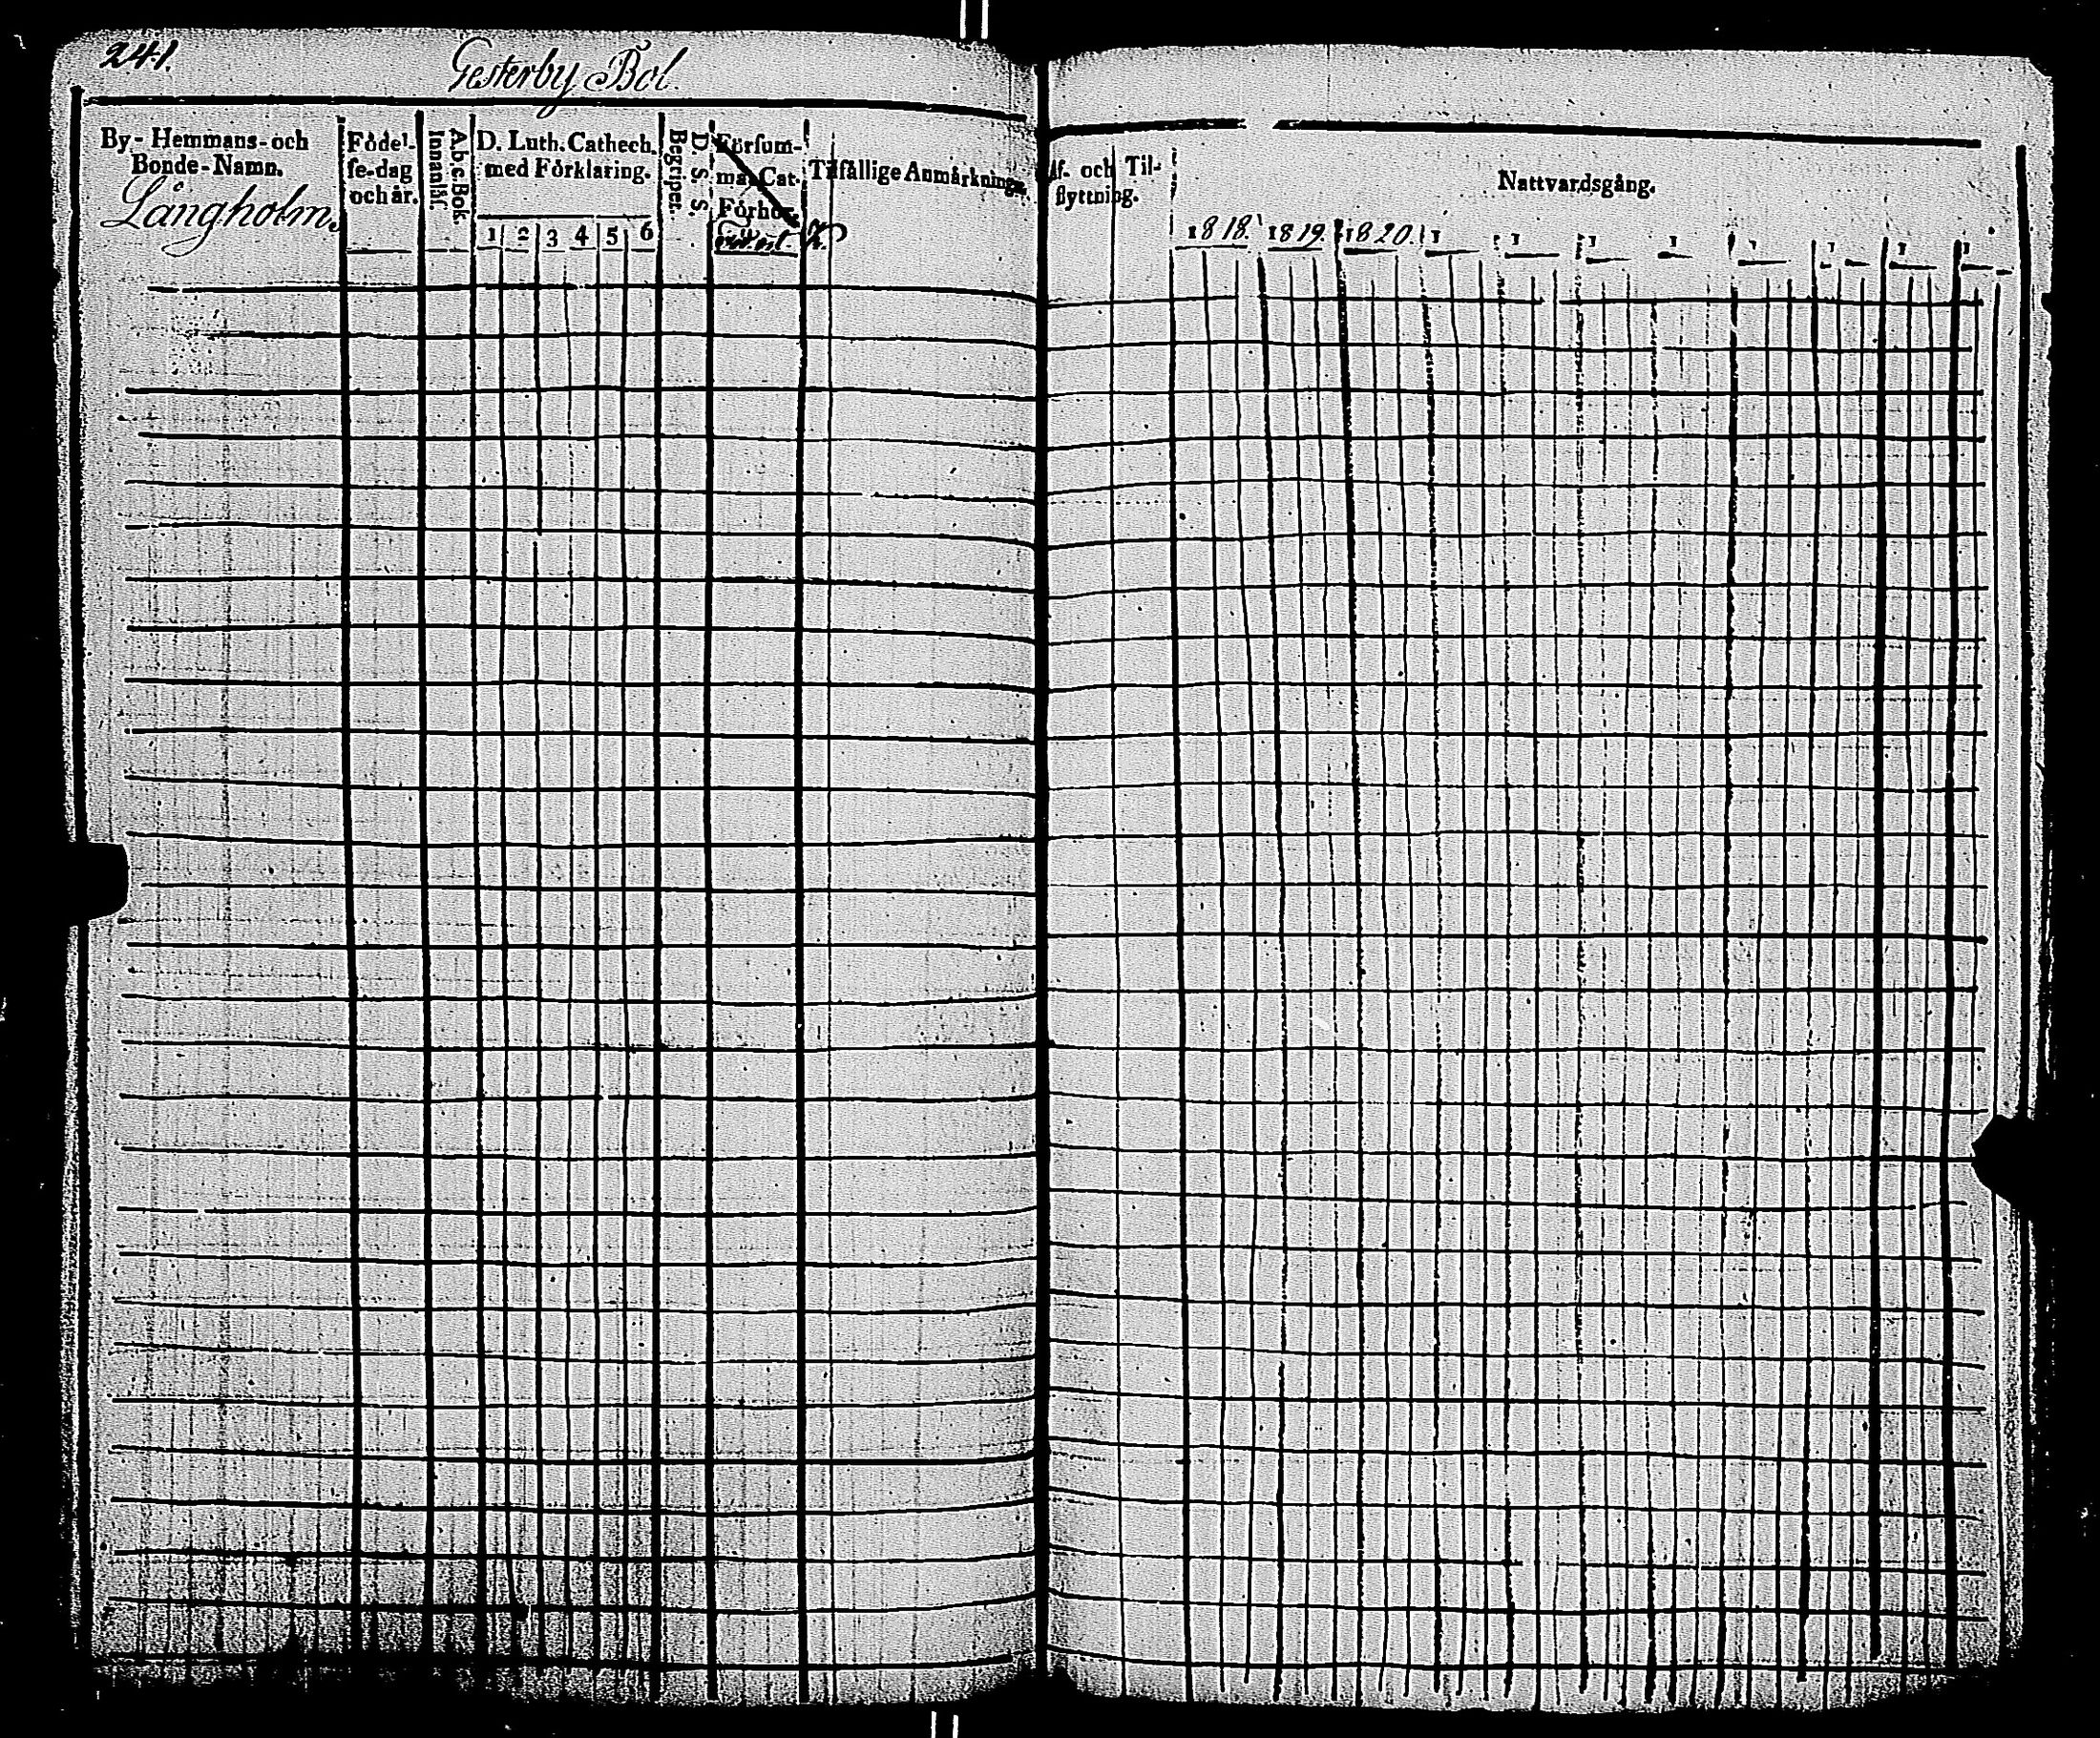 241.
Gesterby Bol.
By- Hemmans- och
Bonde-Namn.
Långholms
Födel-
se-dag
och år.
A.b.c.Bok
Innanläs.
D. Luth. Cathech.
med Förklaring.
1 2 3 4 5 6
D. S. S.
Begriper.
Försum-
mat Cat.
Förhör.
Tilfällige Anmärkning.
Af- och Til-
flyttning.
Nattvardsgång.
1818. 1819. 1820. 1 1 1 1 1 1 1 1